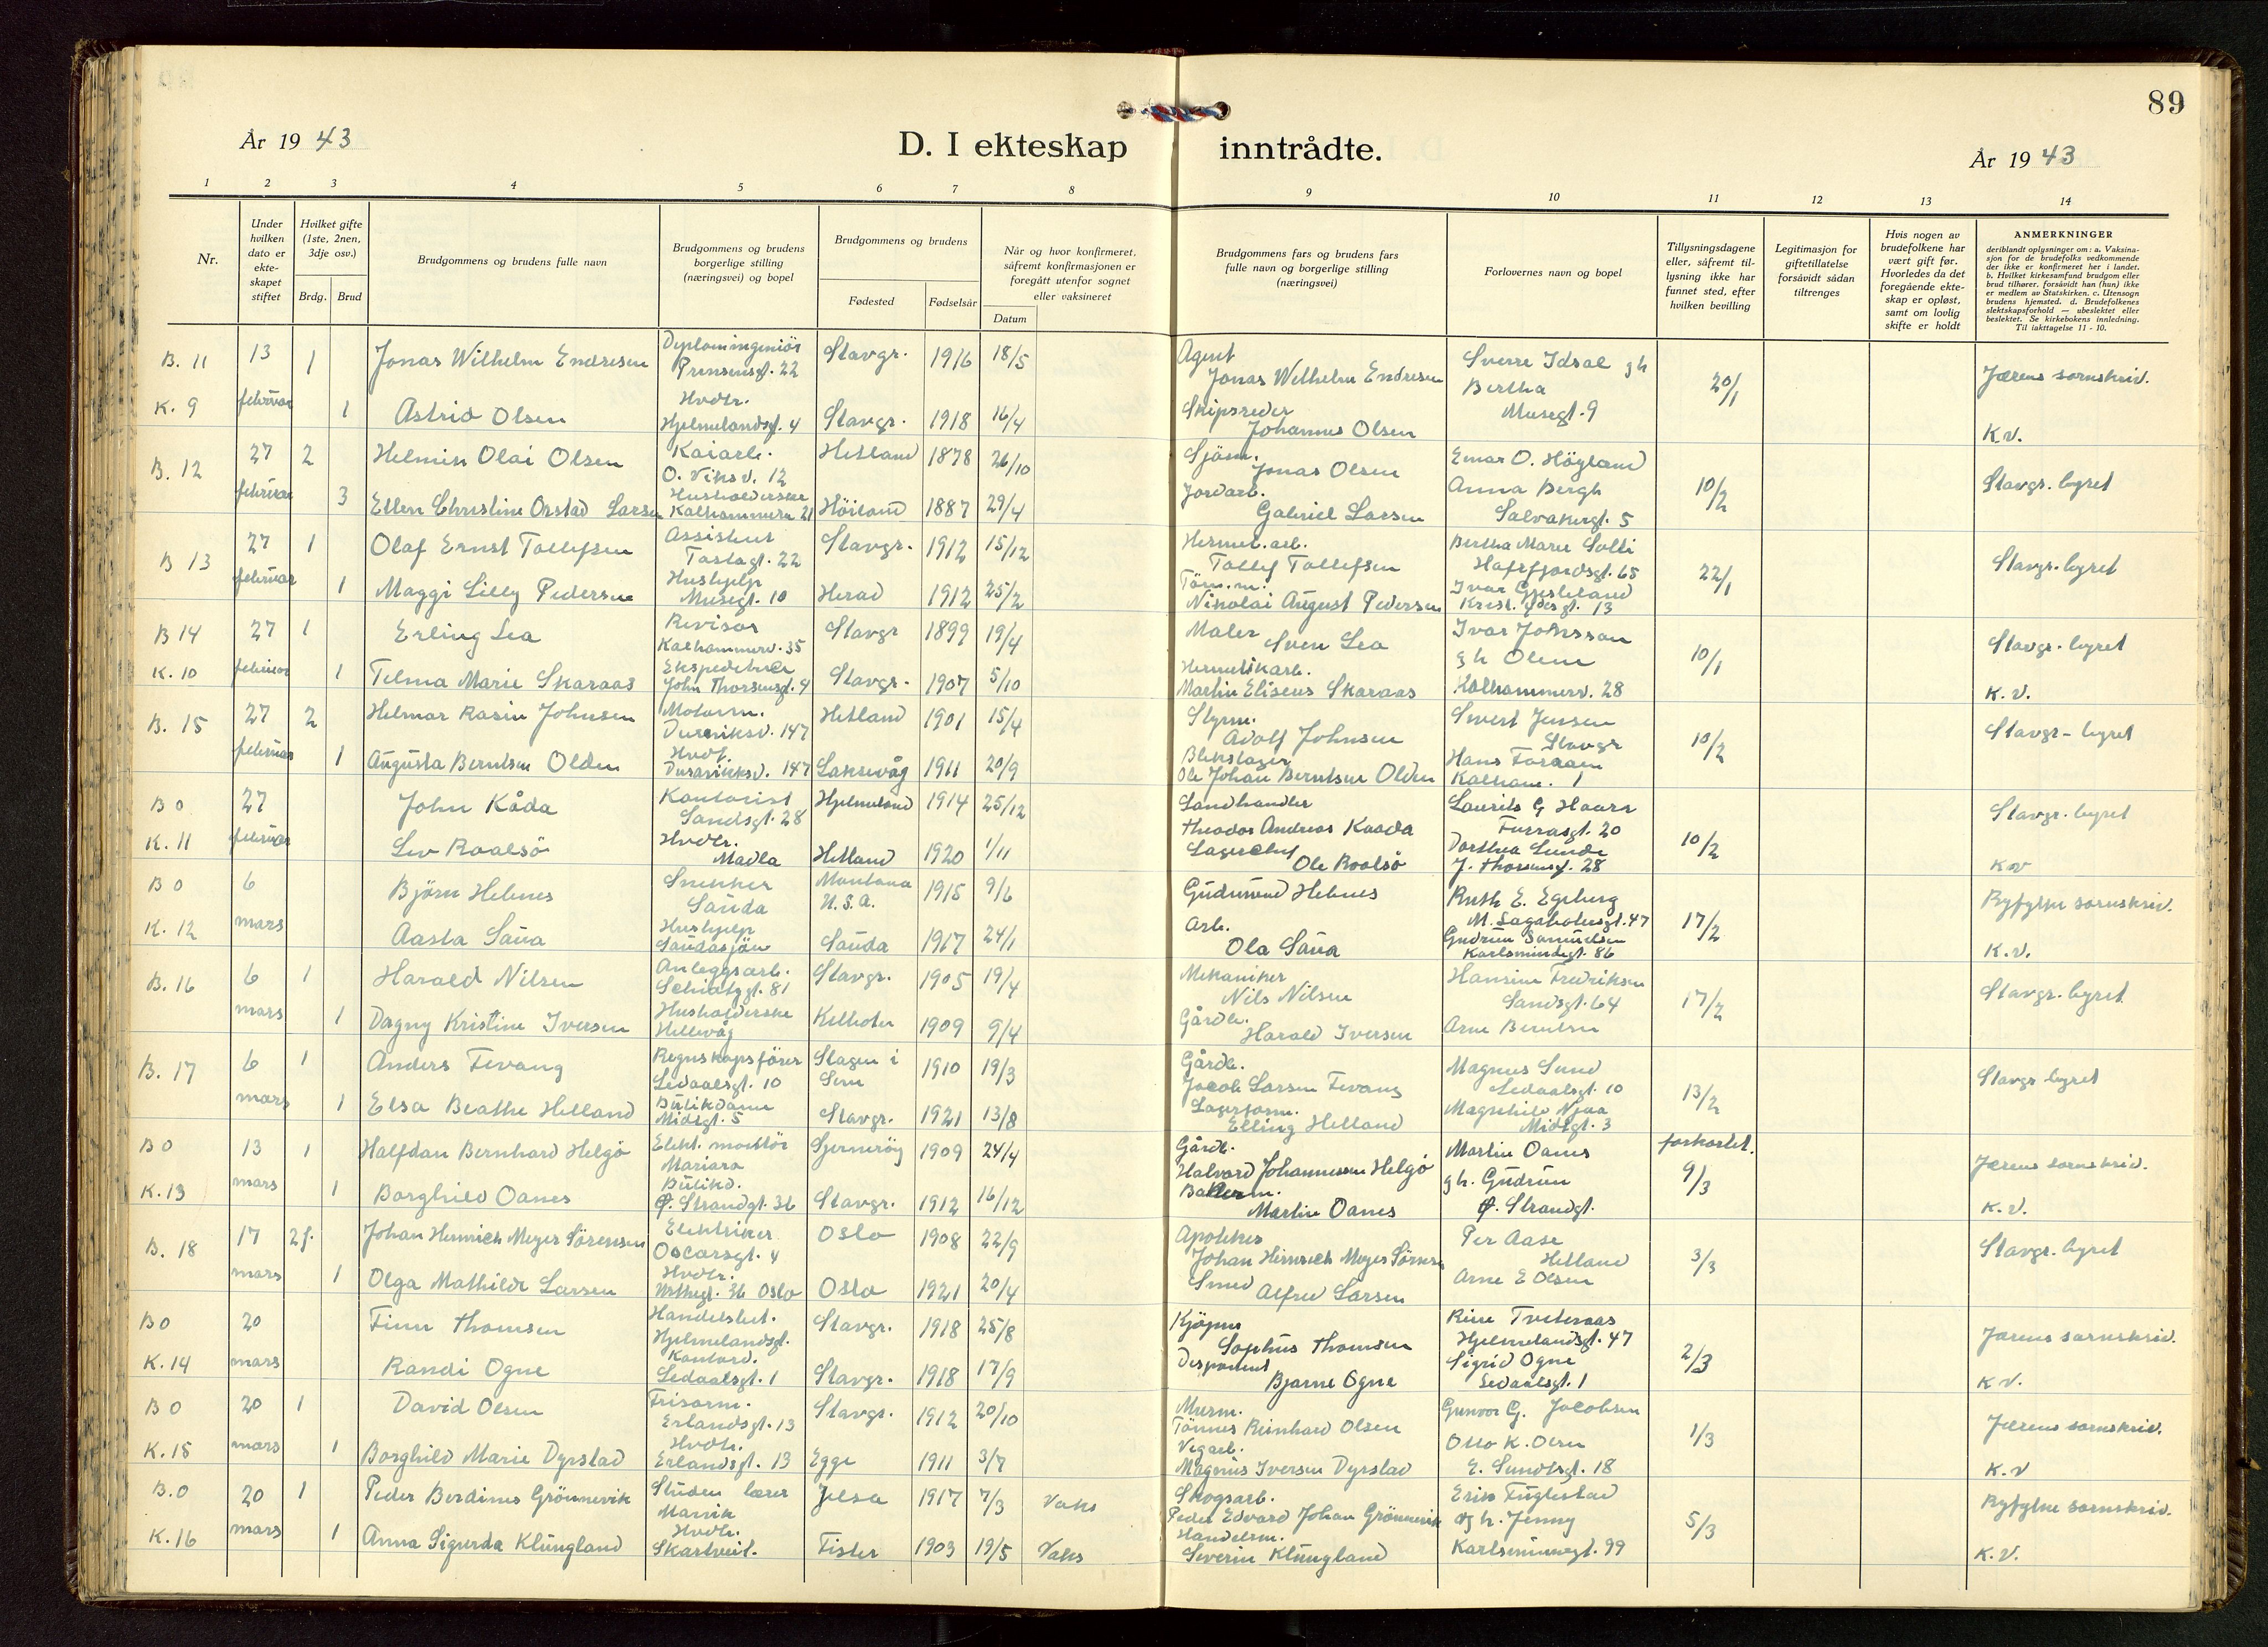 89
År 19 43
D. I ekteskap inntrådte.
År 19 43
1 2 3 4 5 6 7 8 9 10 11 12 13 14
Nr.
Under hvilken dato er ekte-skapet stiftet
Hvilket gifte (1ste, 2nen, 3dje osv.)
Brdg. Brud
Brudgommens og brudens fulle navn
Brudgommens og brudens borgerlige stilling (næringsvei) og bopel
Brudgommens og brudens
Fødested Fødselsår
Når og hvor konfirmeret, såfremt konfirmasjonen er foregått utenfor sognet eller vaksineret
Datum
Brudgommens fars og brudens fars fulle navn og borgerlige stilling (næringsvei)
Forlovernes navn og bopel
Tillysningsdagene eller, såfremt tillysning ikke har funnet sted, efter hvilken bevilling
Legitimasjon for giftetillatelse forsåvidt sådan tiltrenges
Hvis nogen av brudefolkene har vært gift før. Hvorledes da det foregående ekteskap er opløst, samt om lovlig skifte er holdt
ANMERKNINGER
deriblandt oplysninger om: a. Vaksinasjon for de brudefolks vedkommende der ikke er konfirmeret her i landet. b. Hvilket kirkesamfund brudgom eller brud tilhører, forsåvidt han (hun) ikke er medlem av Statskirken. c. Utensogn brudens hjemsted. d. Brudefolkenes slektskapsforhold — ubeslektet eller beslektet. Se kirkebokens innledning. Til iakttagelse 11 - 10.
B. 11 13 1 Jonas Wilhelm Endresen Diplomingeniör Prinsensgt. 22 Stavgr. 1916 18/5 Agent Jonas Wilhelm Endresen Sverre Idsal gh Bertha 20/1 Jærens sornskriv.
K. 9 februar 1 Astrid Olsen Hvdtr. Hjelmelandsgt. 4 Stavgr. 1918 16/4 Skipsreder Johannes Olsen Musegt. 9 K.v.
B. 12 27 2 Helmin Olai Olsen Kaiarb. O. Viksv. 12 Hetland 1878 26/10 Sjöm. Jonas Olsen Einar O. Högland 10/2 Stavgr. byret
februar 3 Ellen Christine Orstad Larsen Husholderske Kalhammerv 21 Höiland 1887 29/4 Jordarb. Gabriel Larsen Anna Bergh Solvakergt. 5
B 13 27 1 Olaf Ernst Tollefsen Assistent Tastagt. 22 Stavgr. 1912 15/12 Hermet. arb. Tollef Tollefsen Bertha Marie Solli Hafrsfjordsgt. 65 22/1 Stavgr. byret
februar 1 Maggi Lilly Pedersen Hushjelp Musegt. 10 Herad 1912 25/2 Töm.m. Nikolai August Pedersen Ivar Gjesteland 13
B 14 27 1 Erling Lea Revisor Kalhammerv. 35 Stavgr 1899 19/4 Maler Sven Lea Ivar Johnsson gh Oline 10/1 Stavgr. byret
K. 10 februar 1 Telma Marie Skaraas Ekspeditrice John Thorsensgt. 4 Stavgr. 1907 5/10 Hermetikarb. Martin Eliseus Skaraas Kalhammerv. 28 K.v.
B. 15 27 2 Helmar Rasin Johnsen Motorm. Dusaviksv. 147 Hetland 1901 15/4 Styrm. Adolf Johnsen Sivert Jensen Stavgr 10/2 Stavgr - byret
februar 1 Augusta Berntsen Olden Hvdt. Dusavikksv. 147 Laksevåg 1911 20/9 Blikslager Ole Johan Berntsen Olden Hans Kalham. 1
B 0 27 John Kåda Kontorist Sandsgt. 28 Hjelmeland 1914 25/12 Landhandler Theodor Andreas Kaada Laurits G Haarr 20 10/2 Stavgr. byret
K. 11 februar Liv Roalsö Hvdtr. Madla Hetland 1920 1/11 Lagerchef Ole Roalsö Dorthea Lunde J. Thorsensgt. 28 K.v
B 0 6 Björn Helmes Snekker Sauda Montana U.S.A. 1915 9/6 Gudmund Helmes Ruth E. Egeberg M. Lagabøtersgt. 47 17/2 Ryfylke sornskriv.
K. 12 mars Aasta Saua Hushjelp Saudasjön Sauda 1917 24/1 Arb. Ola Saua Gudrun Samuelsen Karlsmindegt. 86 K.v.
B. 16 6 1 Harald Nilsen Anleggsarb. Schiötzgt. 81 Stavgr. 1905 19/4 Mekaniker Nils Nilsen Hansine Fredriksen Sandsgt. 64 17/2 Stavgr. byret
mars 1 Dagny Kristine Iversen Husholderske Hellevåg Kelholen 1909 9/4 Gårdb. Harald Iversen Arne Berntsen
B. 17 6 1 Anders Tevang Regnskapsförer Ledaalsgt. 10 Slagen i Sem 1910 19/3 Gårdb. Jacob Larsen Tevang Magnus Lund Ledaalsgt. 10 13/2 Stavgr byret
mars 1 Elsa Beathe Helland Butikdame Midtgt. 5 Stavgr. 1921 13/8 Lagerform. Elling Helland Magnhild Njaa Midtgt. 3
B 0 13 1 Halfdan Bernhard Helgö Elekt. montör Mariero Sjernaröy 1909 24/4 Gårdb. Halvard Johannessen Helgö Martin Oanes gh. Gudrun forkortet. 9/3 Jærens sornskriv.
K. 13 mars 1 Borghild Oanes Butikd. Ø. Strandgt. 36 Stavgr. 1912 16/12 Bakerm. Martin Oanes Ø. Strandgt. K.v.
B. 18 17 2f. Johan Heinrich Meyer Sörensen Elektriker Oscarsgt. 4 Oslo 1908 22/9 Apoteker Johan Heinrich Meyer Sörensen Per Aase Hetland 3/3 Stavgr. byret
mars 1 Olga Mathilde Larsen Hvdtr. 36 Oslo Oslo 1921 20/4 Smed Alfred Larsen Arne E Olsen
B 0 20 Finn Thomsen Handelsbet. Hjelmelandsgt. Stavgr. 1918 25/8 Kjöpm Sophus Thomsen Rine Tveteraas Hjelmelandsgt. 47 2/3 Jærens sornskriv.
K. 14 mars Randi Ogne Kontord. Ledaalsgt. 1 Stavgr. 1918 17/9 Disponent Bjarne Ogne Sigrid Ogne Ledaalsgt. 1 K.v.
B 0 20 1 David Olsen Frisörm. Erlandsgt. 13 Stavgr. 1912 20/10 Murm. Tönnes Reinhard Olsen Gunvor G. Jacobsen 1/3 Jærens sornskriv.
K. 15 mars 1 Borghild Marie Dyrstad Hvdtr. Erlandsgt. 13 Egge 1911 3/7 Vegarb. Magnus Iversen Dyrstad Otto K. Olsen E. Sundtsgt. 18 K.v
B. 0 20 1 Peder Berdines Grönnevik lærer Marvik Jelsa 1917 7/3 Vaks Skogsarb. Peder Edvard Johan Grönnevik Erik Fuglestad og h. Jenny 5/3 Ryfylke sornskriv.
K. 16 mars 1 Anna Sigurda Klungland Hvdtr. Skartveit. Fister 1903 19/5 Vaks Handelsm. Severin Klungland Karlsminnegt. 99 K.v.